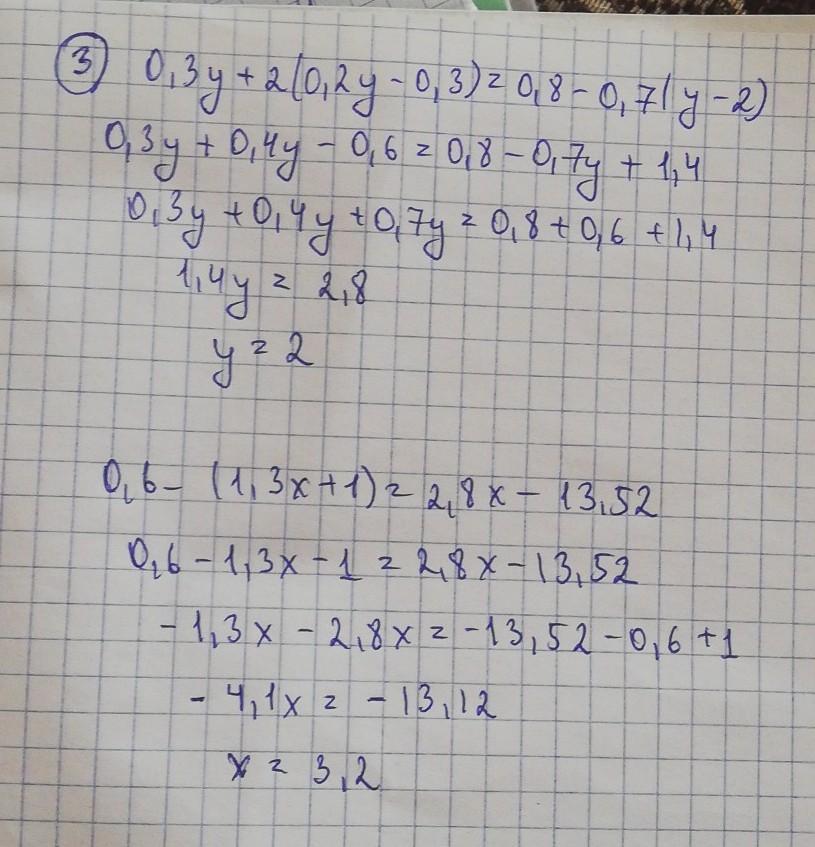 3 0,3y + 2(0,2y - 0,3) = 0,8 - 0,7(y - 2)
0,3y + 0,4y - 0,6 = 0,8 - 0,7y + 1,4
0,3y + 0,4y + 0,7y = 0,8 + 0,6 + 1,4
1,4y = 2,8
y = 2
0,6 - (1,3x + 1) = 2,8x - 13,52
0,6 - 1,3x - 1 = 2,8x - 13,52
- 1,3x - 2,8x = -13,52 - 0,6 + 1
- 4,1x = - 13,12
x = 3,2